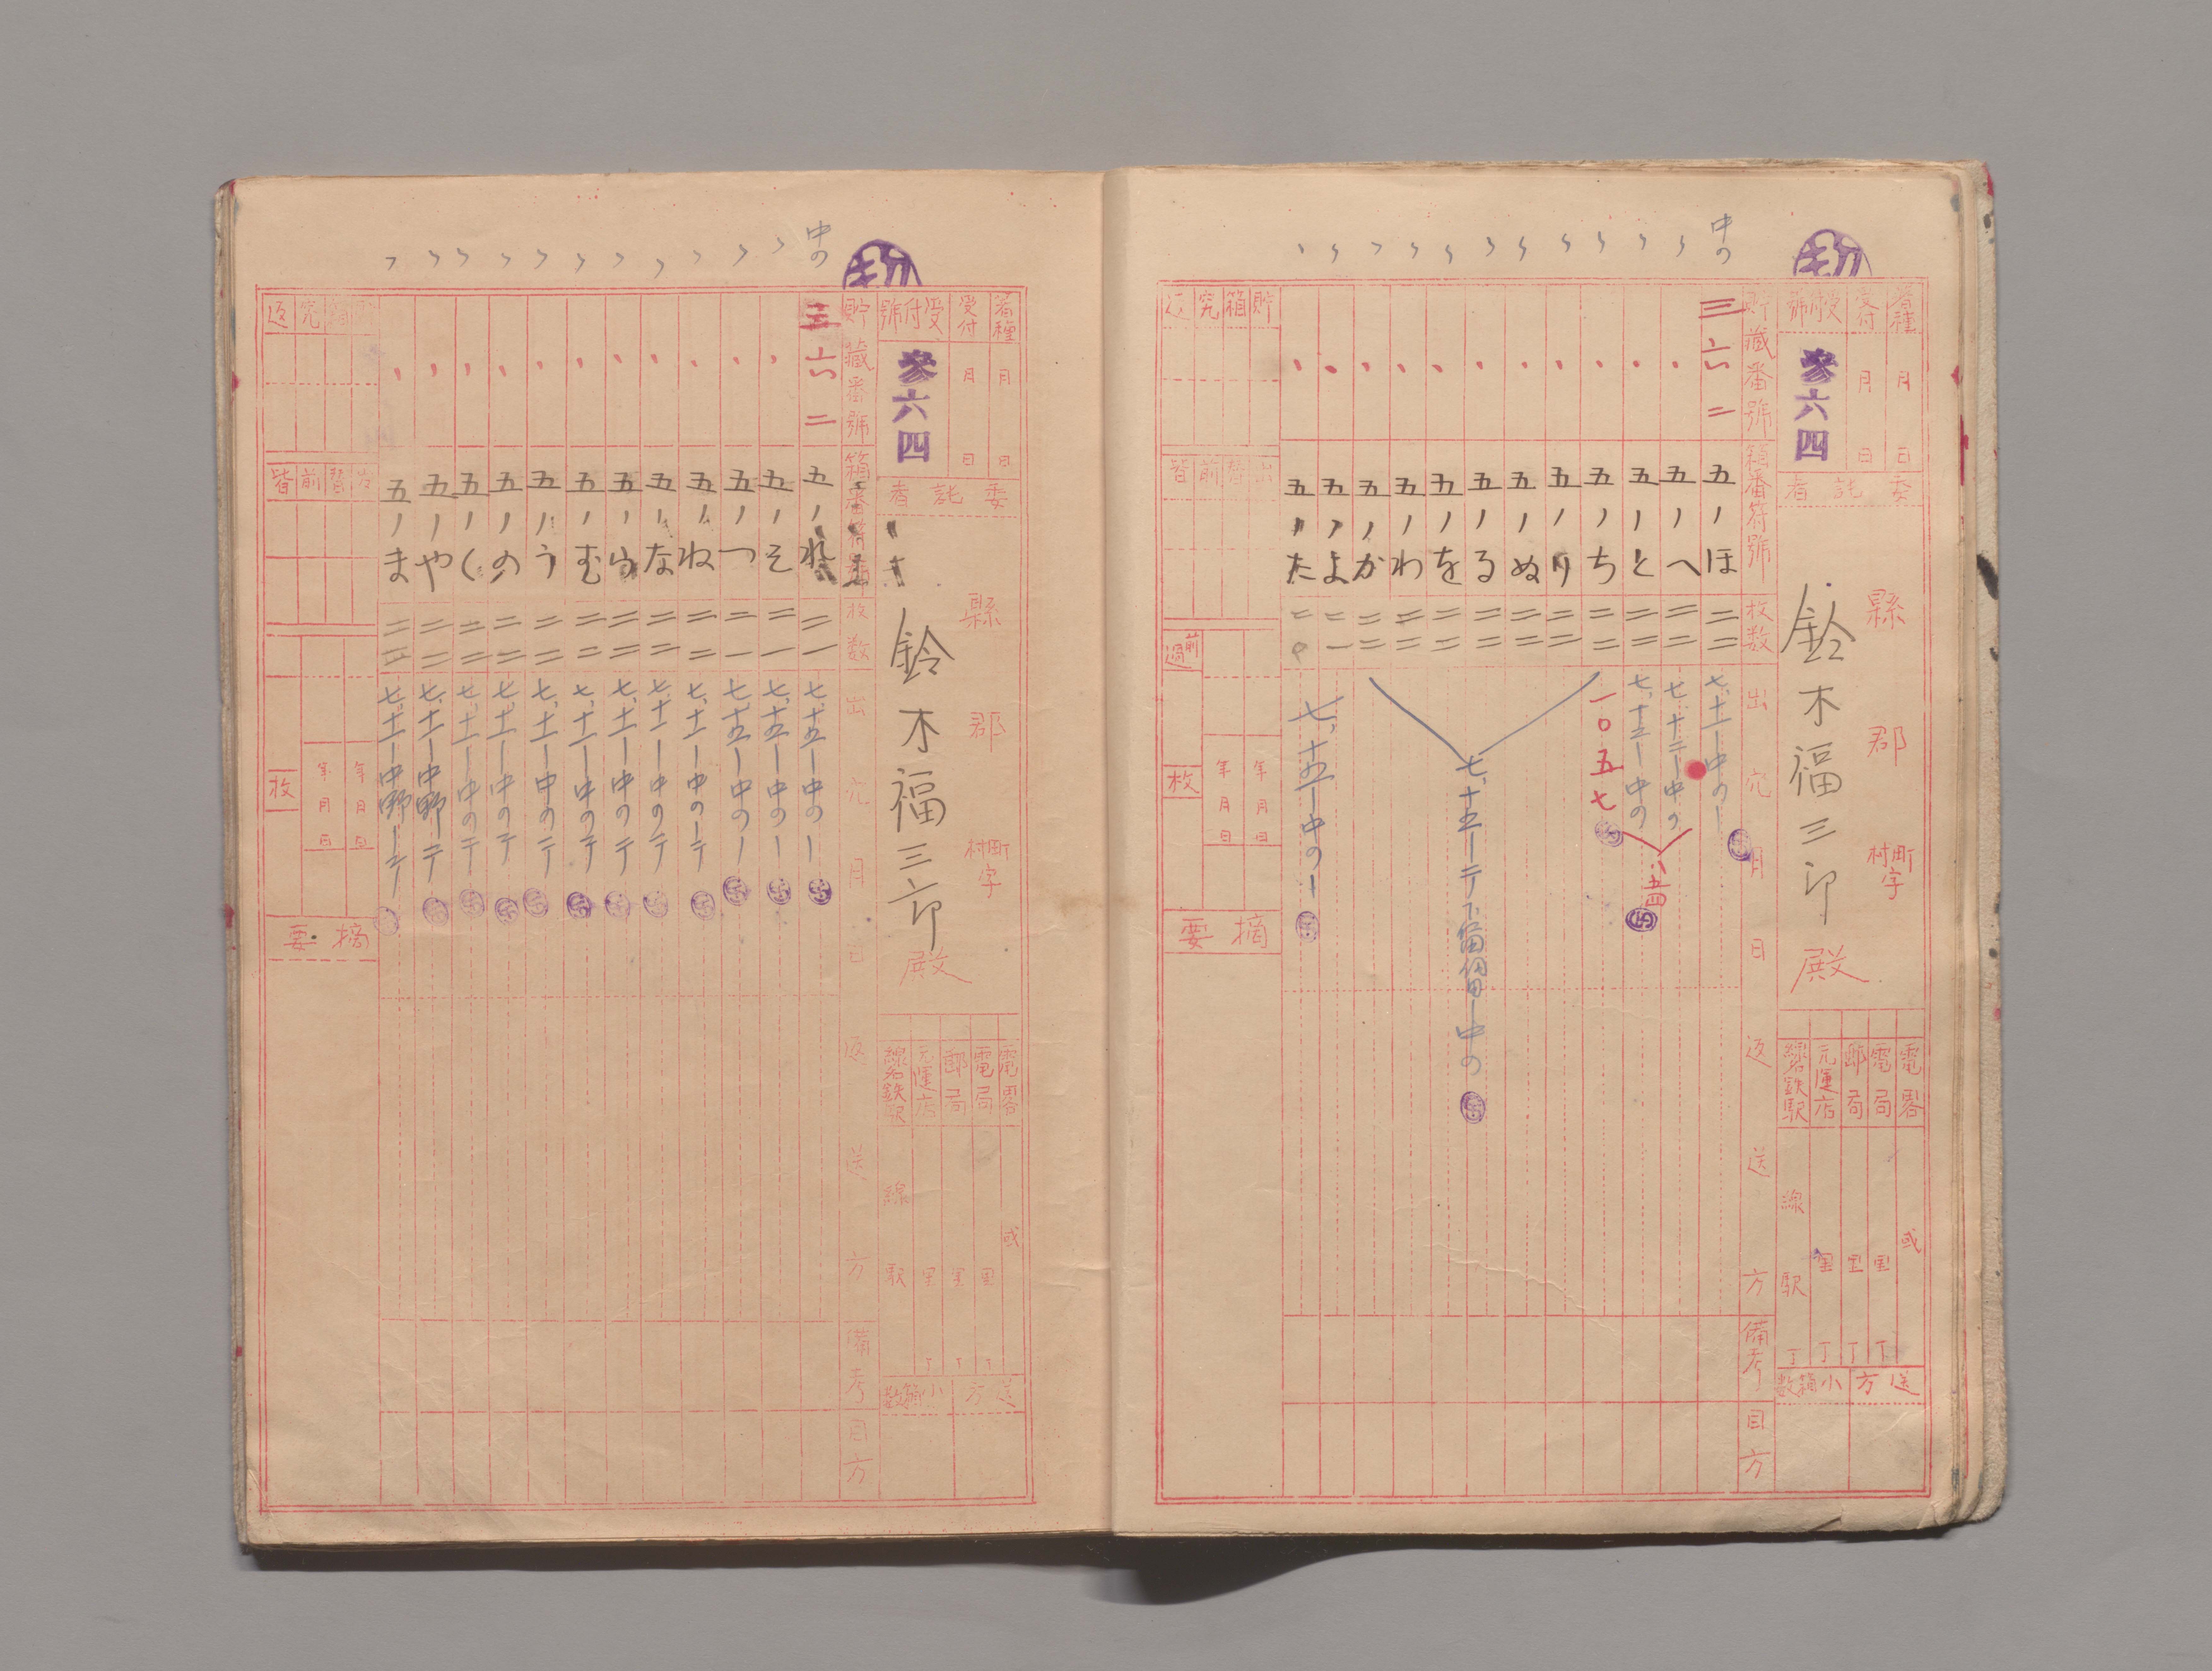 中の
蚕種
月 日
受付
月 日
受付號
参六四
委託者
縣 郡 町村字
鈴木福三郎 殿
電畧
電局
郵局
元運店
線名鉄駅
或
里 丁
里 丁
里 丁
線 駅 丁
送方
小箱数
貯藏番號
箱番符號
枚数
出穴月日
返送方
備考
目方
三六二 五ノほ 二二 七、十一ー中のー
〃 五ノへ 二二 七、十二ー中の
〃 五ノと 二二 七、十三ー中の
〃 五ノち 二二 一〇五七
〃 五ノり 二二
〃 五ノぬ 二二
〃 五ノる 二二
七、十五ー
〃 五ノを 二二
〃 五ノわ 二二
〃 五ノか 二二
〃 五ノよ 二一
〃 五ノた 二〇 七、十五ー中のー
貯箱究返
出替前皆
前過
枚
年月日
年月日
摘要
中の
蚕種
月 日
受付
月 日
受付號
参六四
委託者
縣 郡 町村字
鈴木福三郎 殿
電畧
電局
郵局
元運店
線名鉄駅
或
里 丁
里 丁
里 丁
線 駅
送方
小箱数
貯藏番號
箱番符號
枚数
出穴月日
返送方
備考
目方
三六二 五ノれ 二一 七、十五ー中のー
〃 五ノそ 二一 七、十五ー中のー
〃 五ノつ 二一 七、十五ー中のー
〃 五ノね 二二 七、十一ー中のーテ
〃 五ノな 二二 七、十一ー中のテ
〃 五ノら 二二 七、十一ー中のテ
〃 五ノむ 二二 七、十一ー中のテ
〃 五ノう 二二 七、十一ー中のーテ
〃 五ノの 二二 七、十一ー中のテ
〃 五ノく 二二 七、十一ー中のテ
〃 五ノや 二二 七、十一ー中野ーテ
〃 五ノま 二二 七、十一ー中野ーテ
貯箱究返
出替前皆
枚
年月日
年月日
摘要